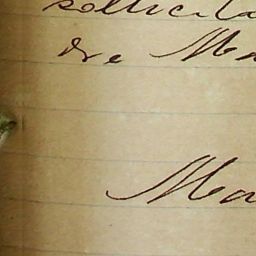 sollicita
dre Ma
Ma